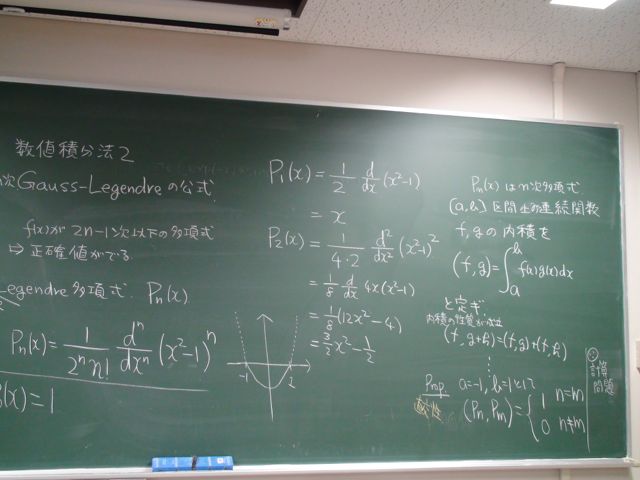 数値積分法2
n次Gauss-Legendreの公式.
f(x)が2n-1次以下の多項式
⇒正確値がでる
Legendre多項式. Pn(x)
Pn(x) = 1/(2^n n!) d^n/dx^n (x²-1)^n
(x) = 1
P1(x) = 1/2 d/dx (x²-1)
= x
P2(x) = 1/(4·2) d²/dx² (x²-1)²
= 1/8 d/dx 4x(x²-1)
= 1/8 (12x²-4)
= 3/2 x² - 1/2
-1
Pn(x)はn次多項式
[a,b]区間上の連続関数
f,gの内積を
(f,g) = ∫_a^b f(x)g(x)dx
と定ギ
内積の性質が
(f,g+h) = (f,g)+(f,h)
⋮
Prop a=-1, b=1として
(Pn, Pm) = { 1 n=m
0 n≠m
計算
問題